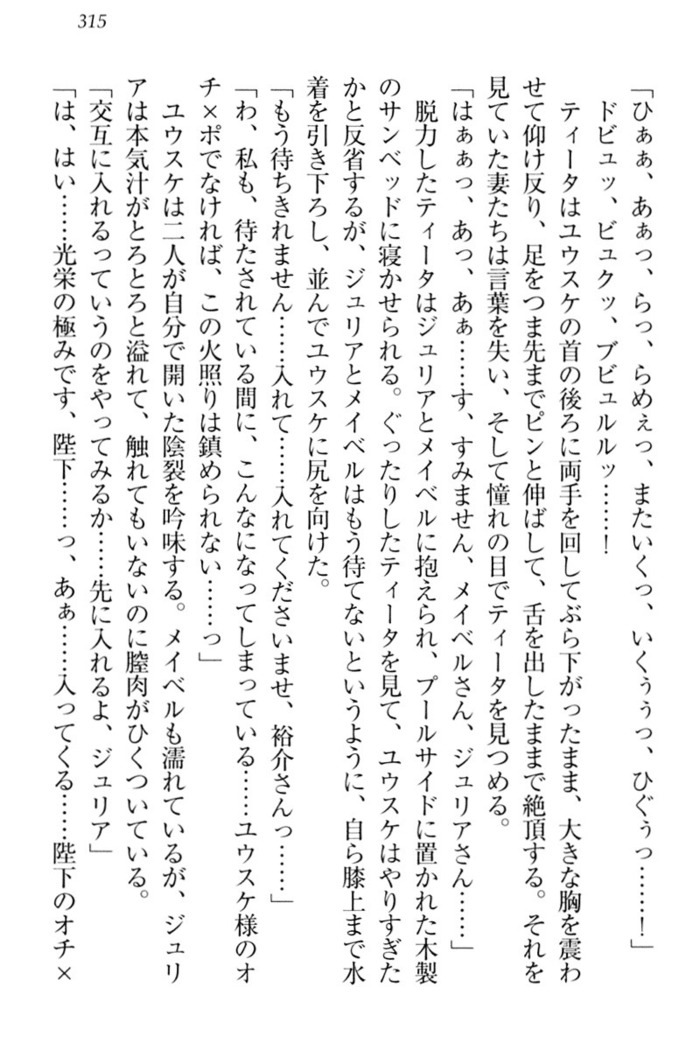 315
「ひぁぁ、あぁっ、らっ、らめぇっ、またいくっ、いくぅぅっ、ひぐぅっ……！」
ドビュッ、ビュクッ、ブビュルルッ……！
ティータはユウスケの首の後ろに両手を回してぶら下がったまま、大きな胸を震わ
せて仰け反り、足をつま先までピンと伸ばして、舌を出したままで絶頂する。それを
見ていた妻たちは言葉を失い、そして憧れの目でティータを見つめる。
「はぁぁっ、あっ、あぁ……す、すみません、メイベルさん、ジュリアさん……」
脱力したティータはジュリアとメイベルに抱えられ、プールサイドに置かれた木製
のサンベッドに寝かせられる。ぐったりしたティータを見て、ユウスケはやりすぎた
かと反省するが、ジュリアとメイベルはもう待てないというように、自ら膝上まで水
着を引き下ろし、並んでユウスケに尻を向けた。
「もう待ちきれません……入れて……入れてくださいませ、裕介さんっ……」
「わ、私も、待たされている間に、こんなになってしまっている……ユウスケ様のオ
チ×ポでなければ、この火照りは鎮められない……っ」
ユウスケは二人が自分で開いた陰裂を吟味する。メイベルも濡れているが、ジュリ
アは本気汁がとろとろと溢れて、触れてもいないのに膣肉がひくついている。
「交互に入れるっていうのをやってみるか……先に入れるよ、ジュリア」
「は、はい……光栄の極みです、陛下……っ、あぁ……入ってくる……陛下のオチ×